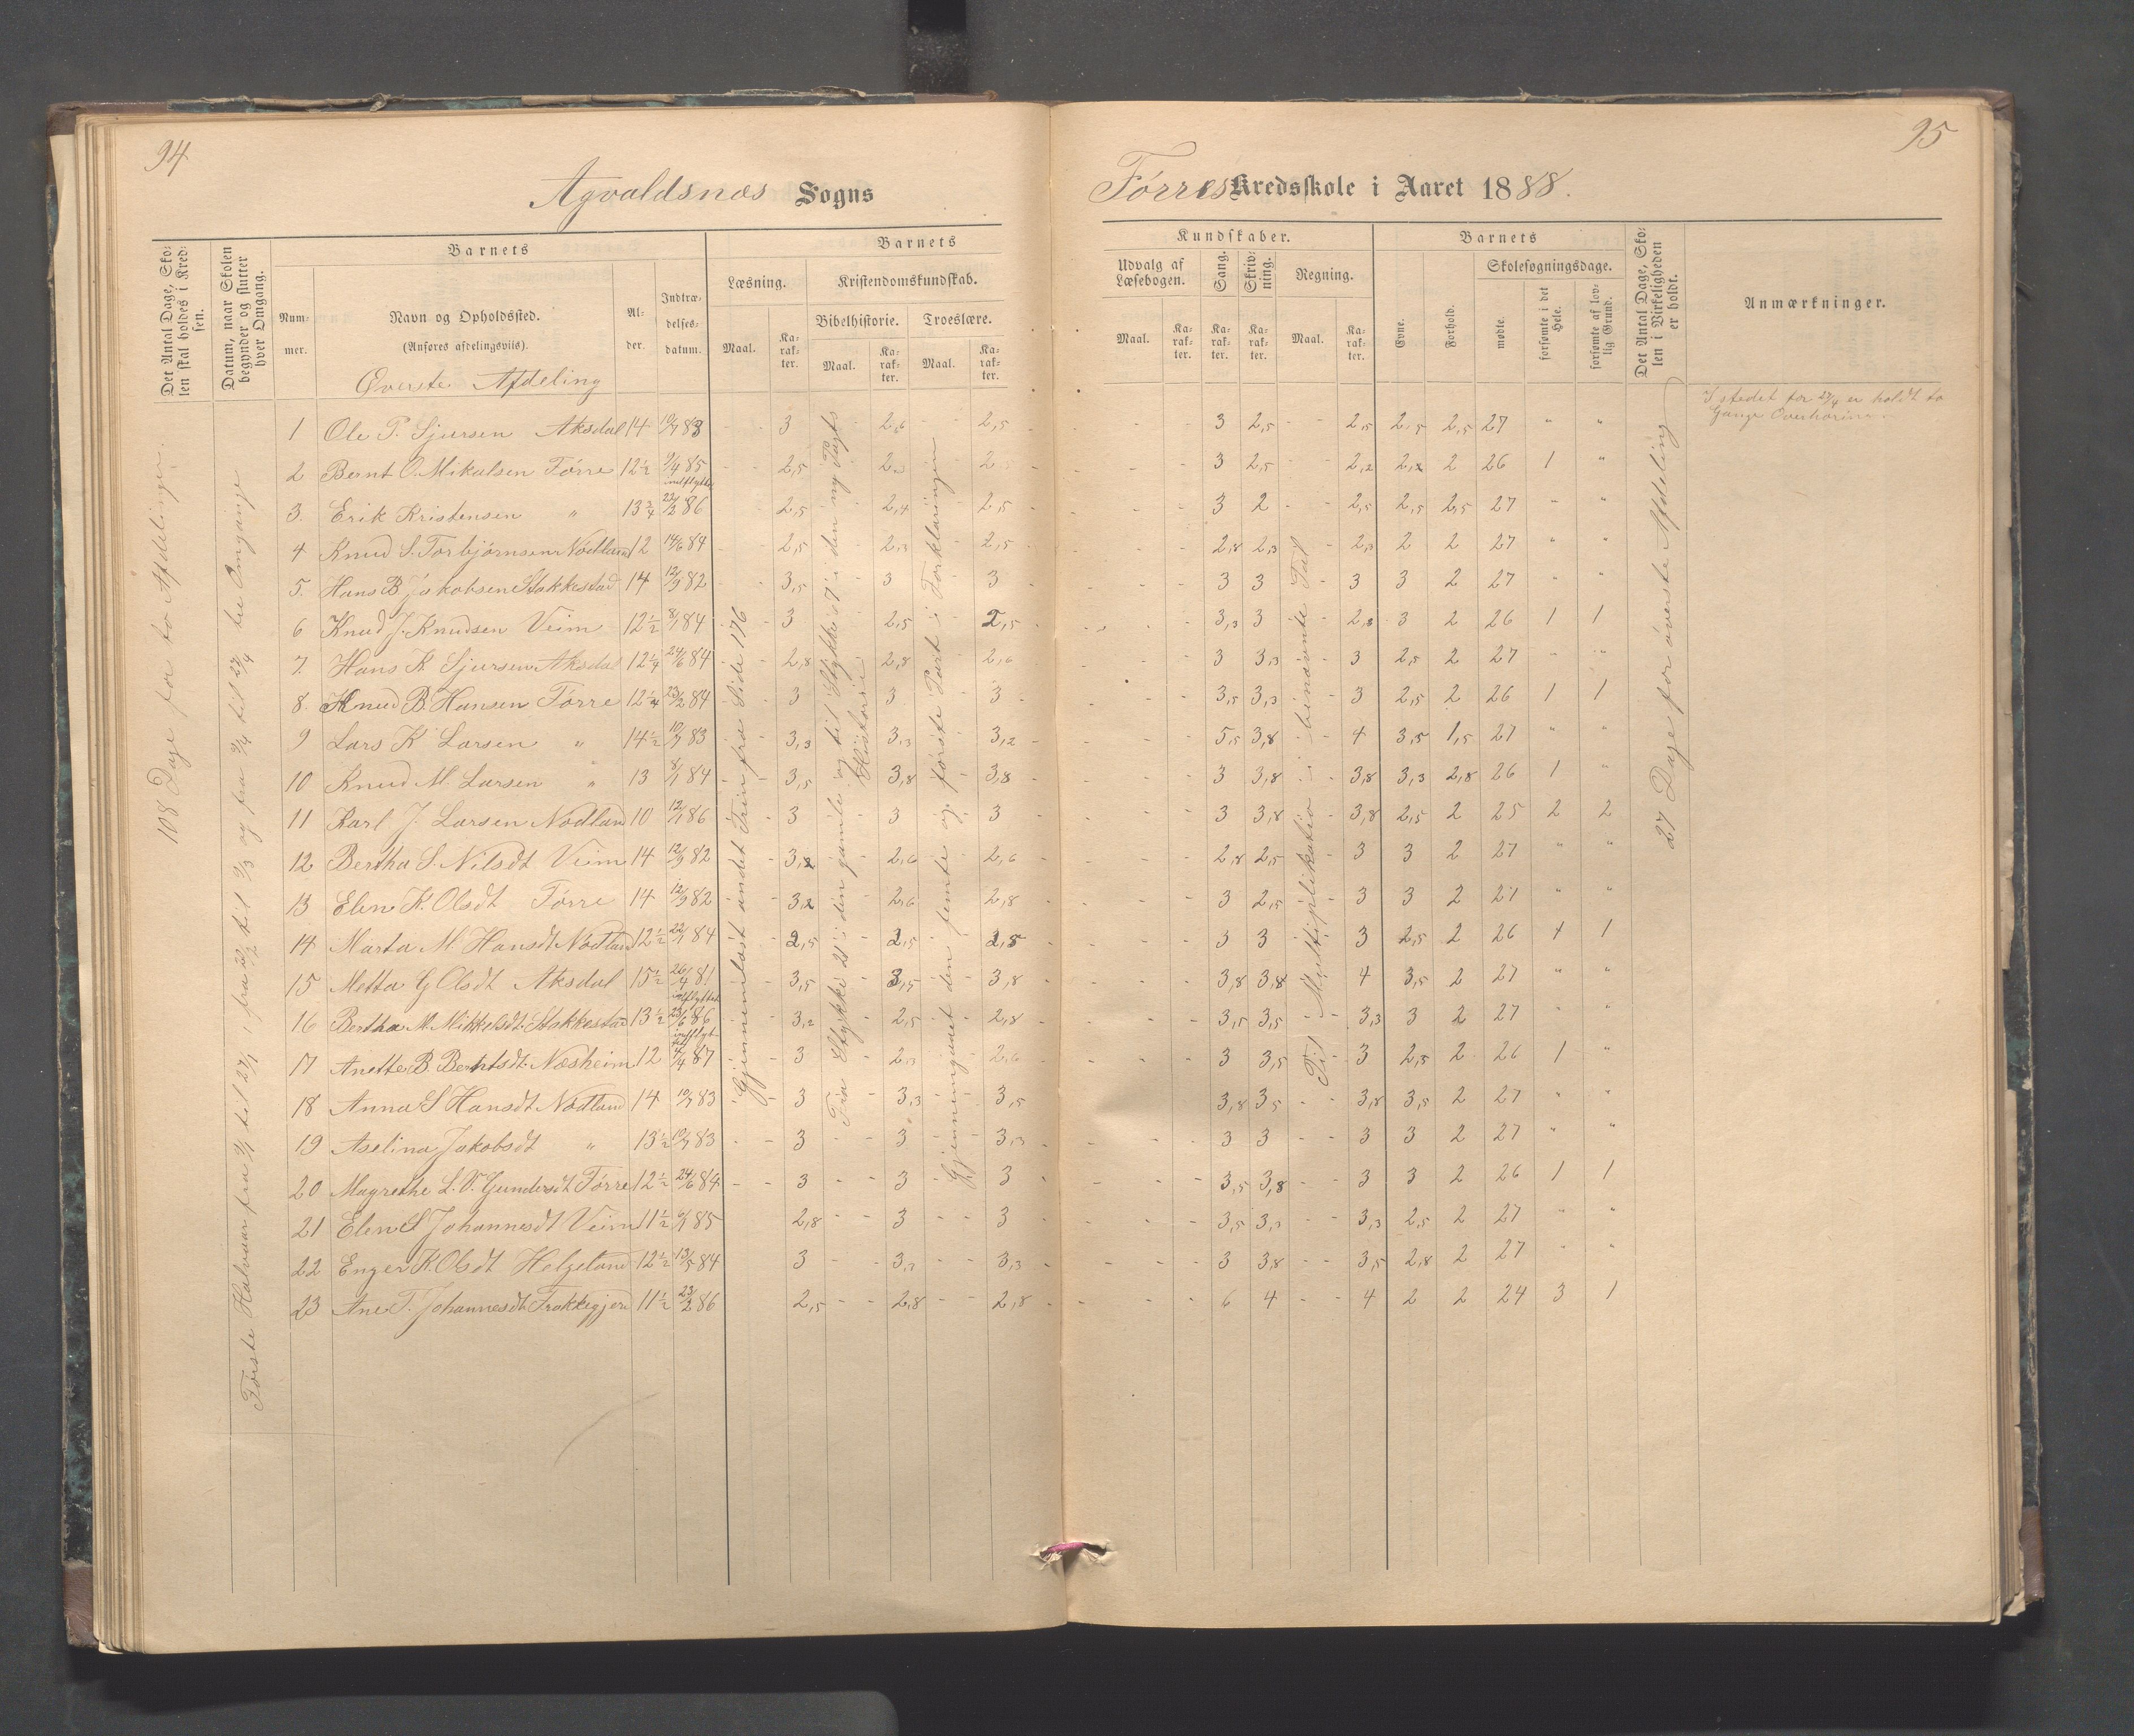 94
Agvaldsnæs Sogns
Det Antal Dage, Skolen skal holdes i Kredsen.
Datum, naar Skolen begynder og slutter hver Omgang.
Barnets
Nummer.
Navn og Opholdssted.
(Anføres afdelingsviis).
Alder.
Indtrædelsesdatum.
Barnets
Læsning.
Maal.
Karakter.
Kristendomskundskab.
Bibelhistorie.
Maal.
Karakter.
Troeslære.
Maal.
Karakter.
Øverste Afdeling
108 Dage for to Afdelinger.
Første Halvaar fra 9/1 til 27/1, fra 20/2 til 3/3 og fra 9/4 til 27/4 tre Omgange
Gjennemlæst andet Trin fra Side 176
Fra Stykke 21 i den gamle og til Stykke 17 i den ny Pagts Historie
Gjennemgaaet den femte og første Part i Forklaringen
1 Ole P. Sjursen Aksdal 14 10/7 83 - - 3 - - 2,6 - - 2,5
2 Bernt O. Mikalsen Førre 12½ 9/4 85 - - 2,5 - 2
indflyttet
3. Erik Kristensen " 13¾ 22/2 86 2,5 - 2,4 - 2,5
4 Knud S. Torbjørnsen Nodland 12 14/6 84 - - 2,5 - 2,3 - 2,5
5. Hans B. Jakobsen Stakkestad 14 12/9 82 - - 3,5 - 3 - 3
6 Knud J. Knudsen Veim 12½ 8/1 84 - - 3 - 2,5 - 2,5
7. Hans K Sjursen Aksdal 12¼ 24/6 84 - - 2,8 - 2,8 - 2,6
8. Knud B. Hansen Førre 12¼ 23/2 84 - 3 3 - 3
9 Lars K Larsen " 14½ 10/7 83 - - 3,3 3,3 - 3,2
10 Knud M. Larsen " 13 8/1 84 - - 3,5 3,8 - 3,8
11 Karl J. Larsen Nodland 10 12/1 86 - 3 - 3 - 3
12 Bertha S. Nilsdt. Veim 14 12/9 82 - - 3,2 - 2,6 - 2,6
13 Elen K. Olsdt Førre 14 12/9 82 - - 3,2 - 2,6 - 2,8
14 Marta M. Hansdt Nodland 12½ 22/1 84 - - 2,5 - 2,5 - 2,5
15 Metta G Olsdt Aksdal 15½ 26/4 81 - - 3,5 - 3,5 - 3,8
indflyttet
16 Bertha M. Mikkelsdt. Stakkestad 13½ 23/6 86 - - 3,2 - 2,5 - 2,8
17 Anette B. Berntsdt. Næsheim 12 /4 87 - - 3 - 2,3 - 2,6
18 Anna S Hansdt Nodland 14 10/7 83 - - 3 - 3,3 - 3,5
19 Aselina Jakobsdt " 13½ 10/7 83 - - 3 - - 3 - 3,3
20 Magrethe L. V. Gundersdt Førre 12½ 24/6 84 - - 3 - - 3 - 3
21 Elen S Johannesdt Veim 11½ 6/1 85 2,8 - - 3 - - 3
22 Enger K. Olsdt Helgeland 12½ 13/5 84 3 - - 3,3 - - 3,3
23 Ane T. Johannesdt Frakkagjerd 11½ 23/2 86 2,5 - - 2,8 - - 2,8
95
Førres Kredsskole i Aaret 1888.
Kundskaber.
Udvalg af Læsebogen.
Maal.
Karakter.
Sang.
Karakter.
Skrivning.
Karakter.
Regning.
Maal.
Karakter.
Barnets
Evne.
Forhold.
Skolesøgningsdage.
mødte.
forsømte i det Hele.
forsømte af lovlig Grund.
Det Antal Dage, Skolen i Virkeligheden er holdt.
Anmærkninger.
Til Multiplikation i benævnte Tal
27 Dage for øverste Afdeling
I stedet for 27/4 er holdt to
Gange Overhøring.
3 2,5 - - 2,5 2,5 2,5 27 " "
3 2,5 - - 2,2 2,2 2 26 1 "
3 2 - - 2,5 2,5 2,5 27 " "
2,8 2,3 - 2,3 2 2 27 " "
3 3 - 3 3 2 27 " "
3,3 3 - 2,8 3 2 26 1 1
3 3,3 - 3 2,5 2 27 " "
3,5 3,3 - 3 2,5 2 26 1 1
5,5 3,8 - 4 3,5 1,5 27 " "
3 3,8 - 3,8 3,3 2,8 26 1 "
3 3,8 - 3,8 2,5 2 25 2 2
2,8 2,5 - 3 3 2 27 " "
3 2,5 - 3 3 2 27 " "
3 3 - 3 2,5 2 26 1 1
3,8 3,8 - 4 3,5 2 27 " "
3,5 3,5 - - 3,3 3 2 27 " "
3 3,5 - 3 2,5 2 26 1 "
3,8 3,5 - - 3,8 3,5 2 27 " "
3 3 - - 3 3 2 27 " "
3,5 3,8 - - 3 3 2 26 1 1
3,5 3,3 - - 3,3 2,5 2 27 " "
3 3,8 - - 3,5 2,8 2 27 " "
6 4 - - 4 2 2 24 3 1